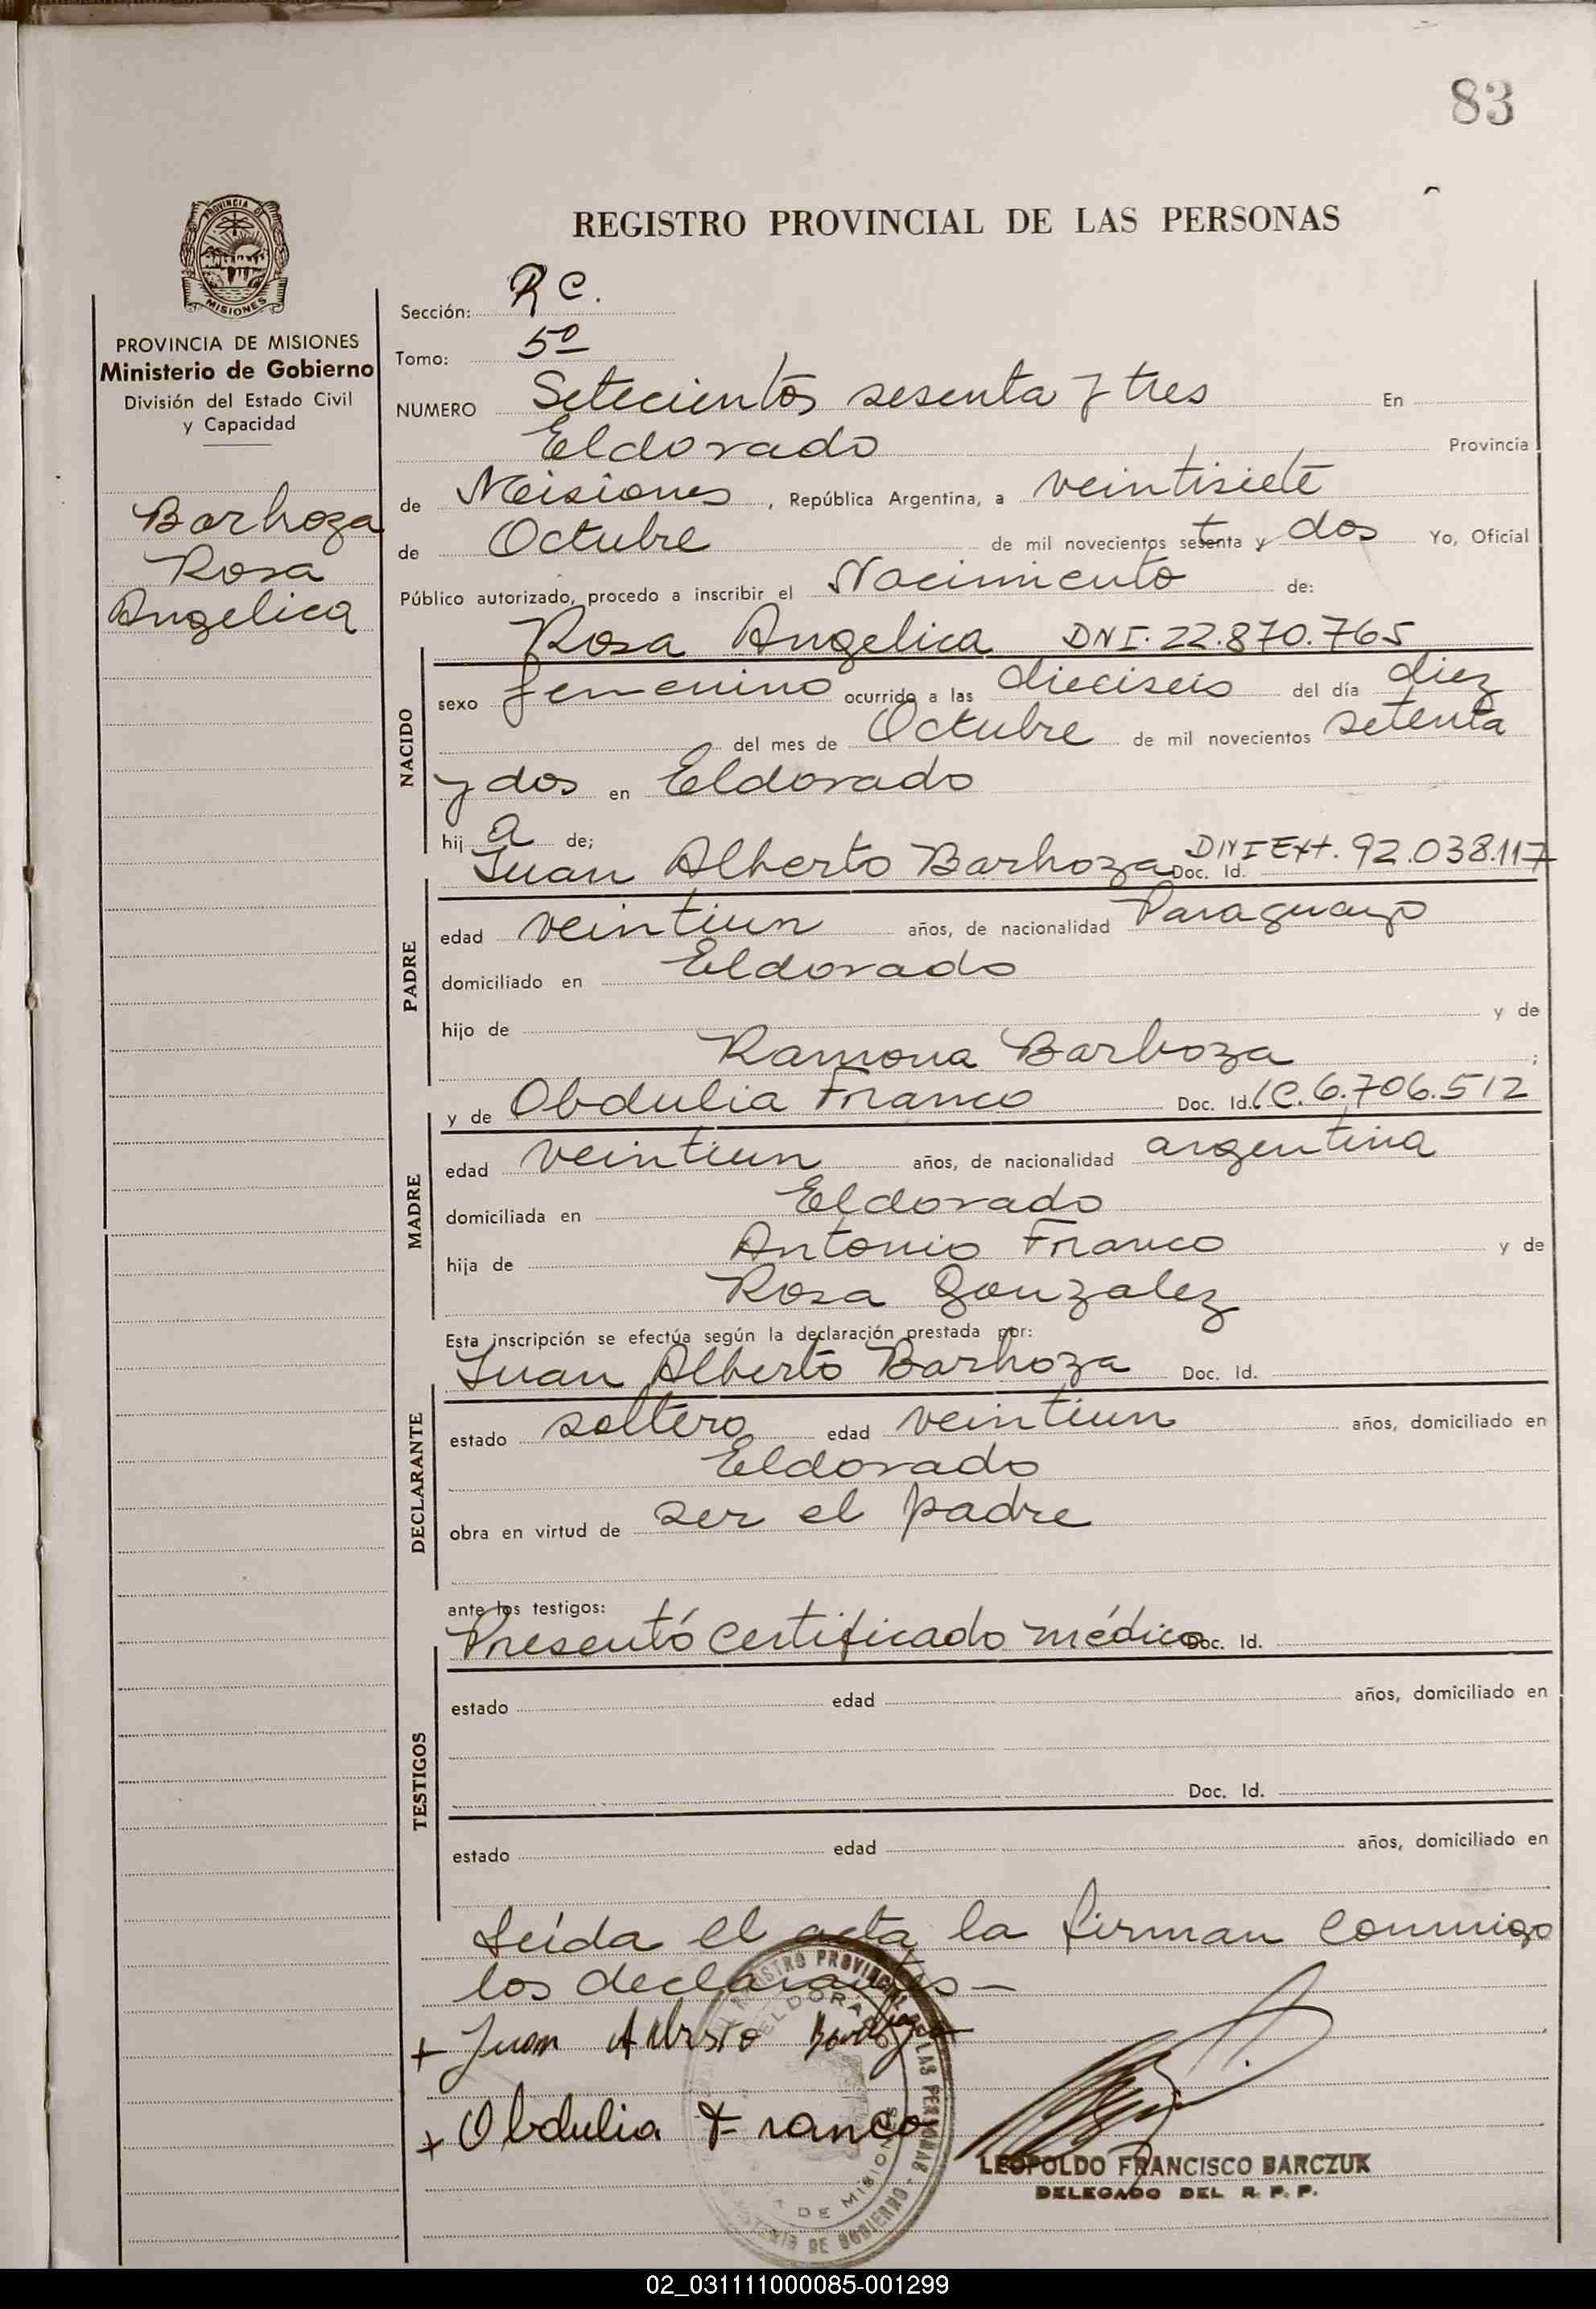 83
PROVINCIA DE
MISIONES
PROVINCIA DE MISIONES
Ministerio de Gobierno
División del Estado Civil
y Capacidad
Barboza
Rosa
Angelica
REGISTRO PROVINCIAL DE LAS PERSONAS
Sección: R C.
Tomo: 5º
NUMERO Setecientos sesenta y tres En
Eldorado Provincia
de Misiones, República Argentina, a veintisiete
de Octubre de mil novecientos setenta y dos Yo, Oficial
Público autorizado, procedo a inscribir el Nacimiento de:
NACIDO
Rosa Angelica DNI. 22.870.765
sexo femenino ocurrido a las dieciseis del día diez
del mes de Octubre de mil novecientos setenta
y dos en Eldorado
hij a de;
PADRE
Juan Alberto Barboza Doc. Id. DNI Ext. 92.038.117
edad veintiun años, de nacionalidad Paraguayo
domiciliado en Eldorado
hijo de y de
Ramona Barboza ;
MADRE
y de Obdulia Franco Doc. Id. LC. 6.706.512
edad veintiun años, de nacionalidad argentina
domiciliada en Eldorado
hija de Antonio Franco y de
Rosa Gonzalez
Esta inscripción se efectúa según la declaración prestada por:
DECLARANTE
Juan Alberto Barboza Doc. Id.
estado soltero edad veintiun años, domiciliado en
Eldorado
obra en virtud de ser el padre
ante los testigos:
TESTIGOS
Presentó certificado médico Doc. Id.
estado edad años, domiciliado en
Doc. Id.
estado edad años, domiciliado en
Leída el acta la firman conmigo
los declarantes —
+ Juan Alberto Barboza
+ Obdulia Franco
REGISTRO PROVINCIAL DE LAS PERSONAS - MINISTERIO DE GOBIERNO
ELDORADO
DE MISIONES
LEOPOLDO FRANCISCO BARCZUK
DELEGADO DEL R. P. P.
02_031111000085-001299